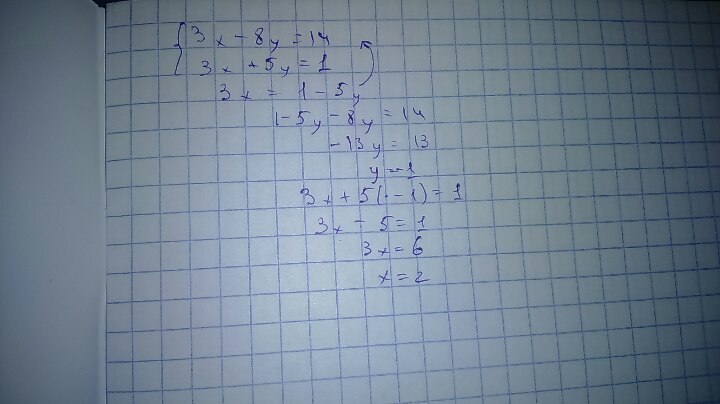 {3x - 8y = 14
3x + 5y = 1
3x = 1 - 5y
1 - 5y - 8y = 14
-13y = 13
y = -1
3x + 5(-1) = 1
3x - 5 = 1
3x = 6
x = 2